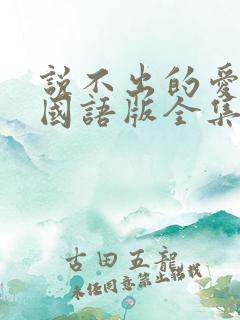 說不出的愛
國語版全集
古田五龍
未经同意禁止转载